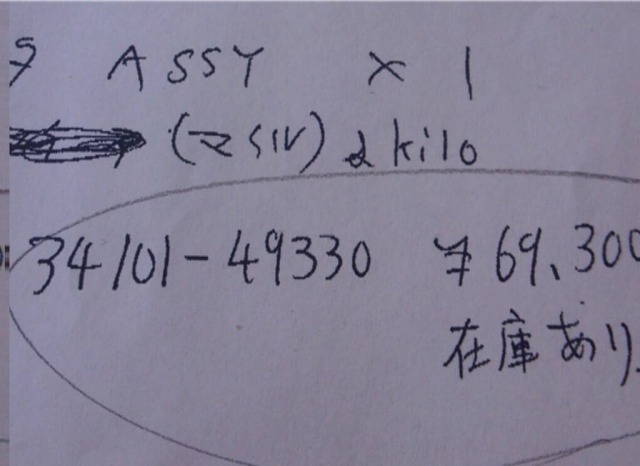 ASSY × 1
(マイル) & kilo
34101-49330 ¥69,300
在庫あり.